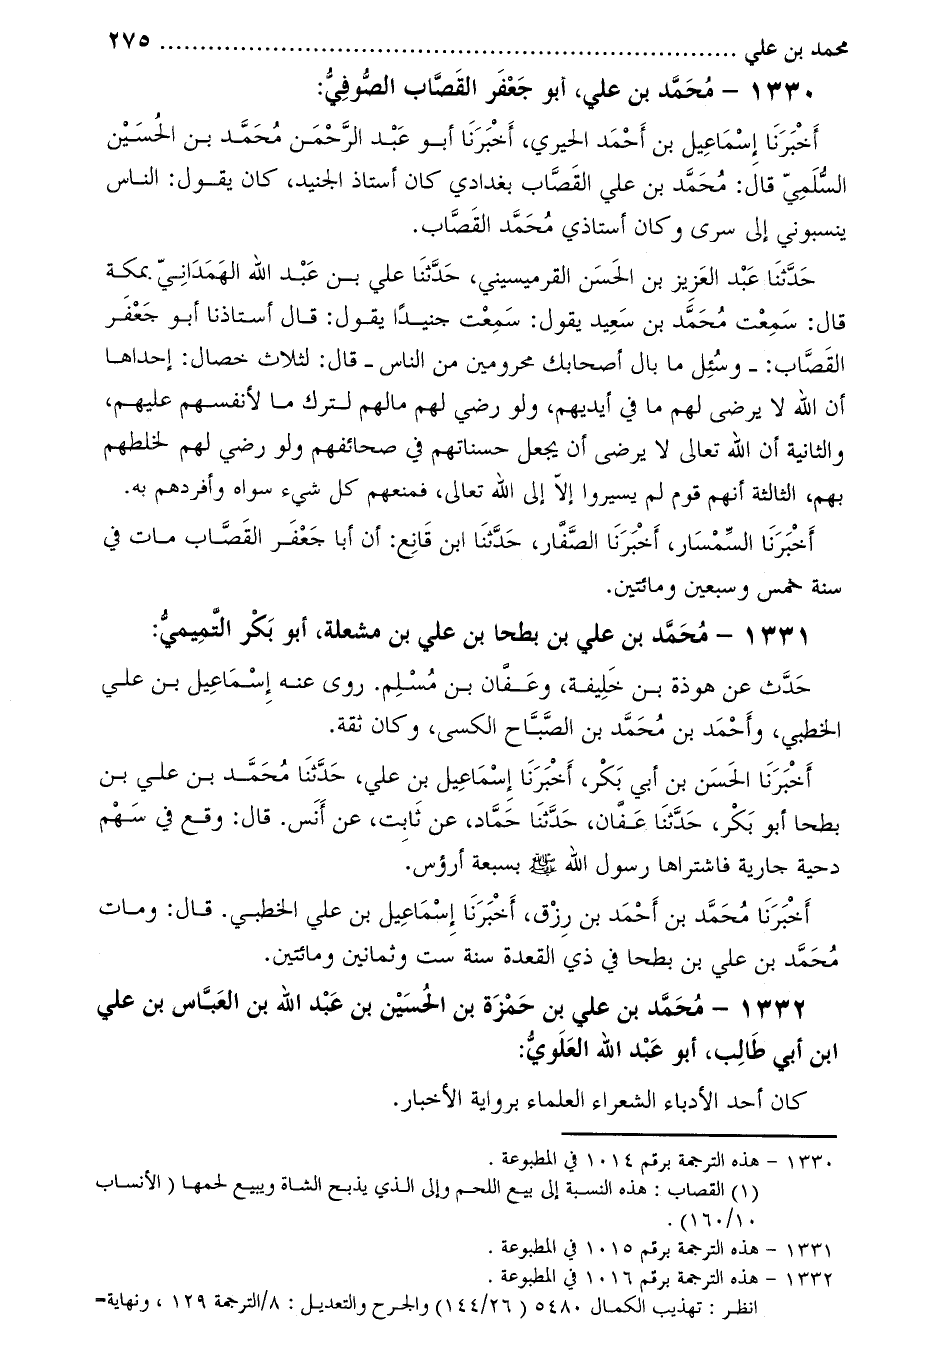 محمد بن علي ........................................................................ ٢٧٥
١٣٣٠ – مُحَمَّد بن علي، أبو جَعْفَر القَصَّاب الصُّوفِيُّ:
أَخْبَرَنَا إِسْمَاعِيل بن أَحْمَد الحيري، أَخْبَرَنَا أبو عَبْد الرَّحْمَن مُحَمَّد بن الحُسَيْن
السُّلَمِيّ قال: مُحَمَّد بن علي القَصَّاب بغدادي كان أستاذ الجنيد، كان يقول: الناس
ينسبوني إلى سرى وكان أستاذي مُحَمَّد القَصَّاب.
حَدَّثَنَا عَبْد العَزيز بن الحَسَن القرميسيني، حَدَّثَنَا علي بن عَبْد الله الهَمَدَانِيّ بمكة
قال: سَمِعْت مُحَمَّد بن سَعِيد يقول: سَمِعْت جنيدًا يقول: قال أستاذنا أبو جَعْفَر
القَصَّاب: ـ وسُئِل ما بال أصحابك محرومين من الناس ـ قال: لثلاث خصال: إحداها
أن الله لا يرضى لهم ما في أيديهم، ولو رضي لهم مالهم لترك ما لأنفسهم عليهم،
والثانية أن الله تعالى لا يرضى أن يجعل حسناتهم في صحائفهم ولو رضي لهم لخلطهم
بهم، الثالثة أنهم قوم لم يسيروا إلاّ إلى الله تعالى، فمنعهم كل شيء سواه وأفردهم به.
أَخْبَرَنَا السِّمْسَار، أَخْبَرَنَا الصَّفَّار، حَدَّثَنَا ابن قانِع: أن أبا جَعْفَر القَصَّاب مات في
سنة خمس وسبعين ومائتين.
١٣٣١ – مُحَمَّد بن علي بن بطحا بن علي بن مشعلة، أبو بَكْر التَّمِيمِيُّ:
حَدَّث عن هوذة بن خَلِيفة، وعَفَّان بن مُسْلِم. روى عنه إِسْمَاعِيل بن علي
الخطبي، وأَحْمَد بن مُحَمَّد بن الصَّبَّاح الكسى، وكان ثقة.
أَخْبَرَنَا الحَسَن بن أبي بَكْر، أَخْبَرَنَا إِسْمَاعِيل بن علي، حَدَّثَنَا مُحَمَّد بن علي بن
بطحا أبو بَكْر، حَدَّثَنَا عَفَّان، حَدَّثَنَا حَمَّاد، عن ثَابِت، عن أَنَس. قال: وقع في سَهْم
دحية جارية فاشتراها رسول الله ﷺ بسبعة أرؤس.
أَخْبَرَنَا مُحَمَّد بن أَحْمَد بن رِزْق، أَخْبَرَنَا إِسْمَاعِيل بن علي الخطبي. قال: ومات
مُحَمَّد بن علي بن بطحا في ذي القعدة سنة ست وثمانين ومائتين.
١٣٣٢ – مُحَمَّد بن علي بن حَمْزَة بن الحُسَيْن بن عَبْد الله بن العَبَّاس بن علي
ابن أبي طَالِب، أبو عَبْد الله العَلَوِيُّ:
كان أحد الأدباء الشعراء العلماء برواية الأخبار.
١٣٣٠ – هذه الترجمة برقم ١٠١٤ في المطبوعة .
(١) القصاب : هذه النسبة إلى بيع اللحم وإلى الذي يذبح الشاة ويبيع لحمها ( الأنساب
١٦٠/١٠) .
١٣٣١ – هذه الترجمة برقم ١٠١٥ في المطبوعة .
١٣٣٢ – هذه الترجمة برقم ١٠١٦ في المطبوعة .
انظر : تهذيب الكمال ٥٤٨٠ ( ١٤٤/٢٦) والجرح والتعديل : ٨/الترجمة ١٢٩ ، ونهاية=